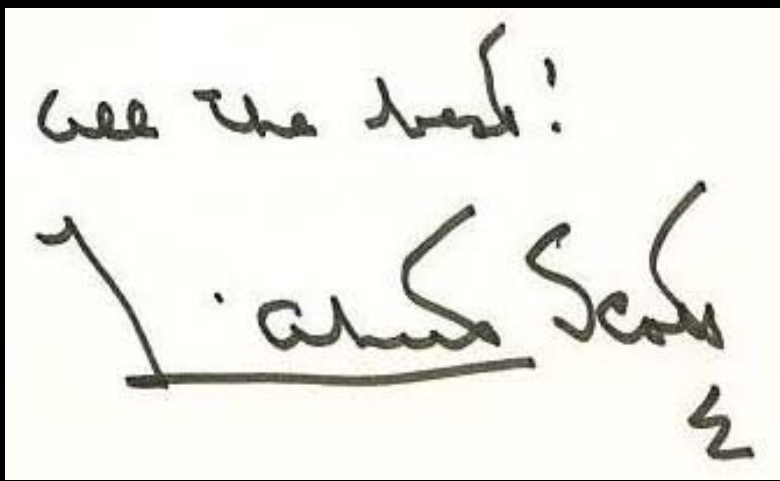 All the best!
Scott